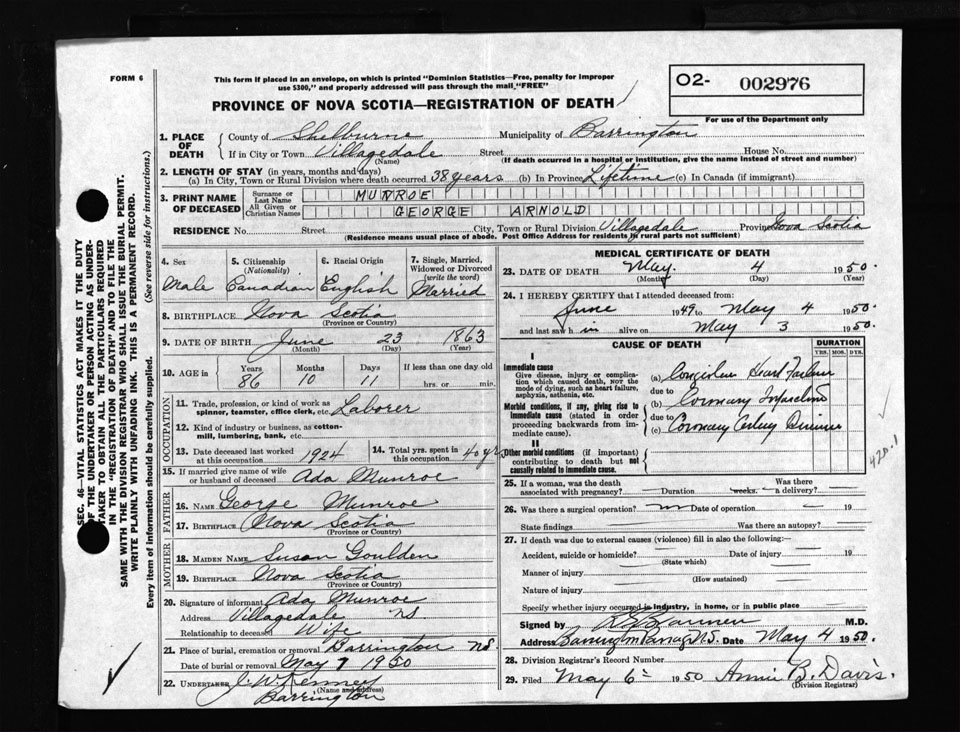 FORM 6
This form if placed in an envelope, on which is printed "Dominion Statistics—Free, penalty for improper
use $300," and properly addressed will pass through the mail "FREE"
PROVINCE OF NOVA SCOTIA—REGISTRATION OF DEATH
O2- 002976
For use of the Department only
SEC. 46—VITAL STATISTICS ACT MAKES IT THE DUTY
OF THE UNDERTAKER OR PERSON ACTING AS UNDER-
TAKER TO OBTAIN ALL THE PARTICULARS REQUIRED
IN THE "REGISTRATION OF DEATH" AND TO FILE THE
SAME WITH THE DIVISION REGISTRAR WHO SHALL ISSUE THE BURIAL PERMIT.
WRITE PLAINLY WITH UNFADING INK. THIS IS A PERMANENT RECORD.
Every item of information should be carefully supplied. (See reverse side for instructions.)
1. PLACE OF DEATH
County of Shelburne Municipality of Barrington
If in City or Town Villagedale Street House No.
(Name) (If death occurred in a hospital or institution, give the name instead of street and number)
2. LENGTH OF STAY (in years, months and days)
(a) In City, Town or Rural Division where death occurred 38 years (b) In Province Lifetime (c) In Canada (if immigrant)
3. PRINT NAME OF DECEASED
Surname or Last Name MUNROE
All Given or Christian Names GEORGE ARNOLD
RESIDENCE No. Street City, Town or Rural Division Villagedale Province Nova Scotia
(Residence means usual place of abode. Post Office Address for residents in rural parts not sufficient)
4. Sex 5. Citizenship (Nationality) 6. Racial Origin 7. Single, Married, Widowed or Divorced (write the word)
Male Canadian English Married
8. BIRTHPLACE Nova Scotia
(Province or Country)
9. DATE OF BIRTH June 23 1863
(Month) (Day) (Year)
10. AGE in Years Months Days If less than one day old
86 10 11 hrs. or min.
OCCUPATION
11. Trade, profession, or kind of work as
spinner, teamster, office clerk, etc. Laborer
12. Kind of industry or business, as cotton-
mill, lumbering, bank, etc.
13. Date deceased last worked at this occupation 1924 14. Total yrs. spent in this occupation 40 yrs
15. If married give name of wife
or husband of deceased Ada Munroe
FATHER
16. NAME George Munroe
17. BIRTHPLACE Nova Scotia
(Province or Country)
MOTHER
18. MAIDEN NAME Susan Goulden
19. BIRTHPLACE Nova Scotia
(Province or Country)
20. Signature of informant Ada Munroe
Address Villagedale NS
Relationship to deceased Wife
21. Place of burial, cremation or removal Barrington NS
Date of burial or removal May 7 1950
22. UNDERTAKER J. W. Kenney
(Name and address)
Barrington
MEDICAL CERTIFICATE OF DEATH
23. DATE OF DEATH May 4 1950.
(Month) (Day)
24. I HEREBY CERTIFY that I attended deceased from:
June 1949 to May 4 1950.
and last saw h im alive on May 3 1950.
CAUSE OF DEATH DURATION
YRS. MOS. DYS.
I
Immediate cause
Give disease, injury or complica-
tion which caused death, NOT the
mode of dying, such as heart failure,
asphyxia, asthenia, etc.
(a) Heart Failure
due to
Morbid conditions, if any, giving rise to
immediate cause (stated in order
proceeding backwards from im-
mediate cause).
(b) Coronary
due to
(c) Coronary
II
Other morbid conditions (if important)
contributing to death but not
causally related to immediate cause.
420.1
25. If a woman, was the death
associated with pregnancy? Duration weeks. Was there a delivery?
26. Was there a surgical operation? no Date of operation 19
State findings Was there an autopsy?
27. If death was due to external causes (violence) fill in also the following:
Accident, suicide or homicide? Date of injury 19
(State which)
Manner of injury
(How sustained)
Nature of injury
Specify whether injury occurred in industry, in home, or in public place
Signed by M.D.
Address N.S. Date May 4 1950.
28. Division Registrar's Record Number
29. Filed May 6 1950 Annie B. Davis
(Division Registrar)